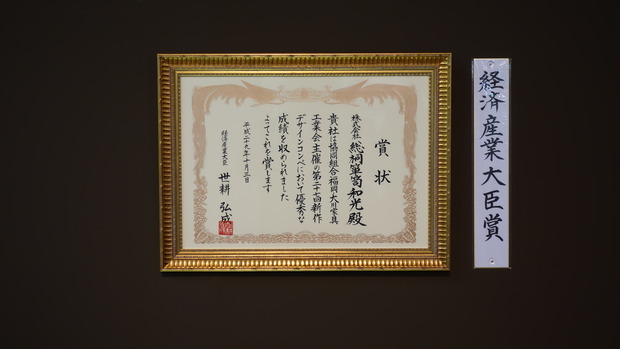 経済産業大臣賞
賞状
株式会社 総桐箪笥和光殿
貴社は協同組合福岡大川家具
工業会主催の第二十七回新作
デザインコンペにおいて優秀な
成績を収められました
よってこれを賞します
平成二十九年十月三日
経済産業大臣 世耕 弘成